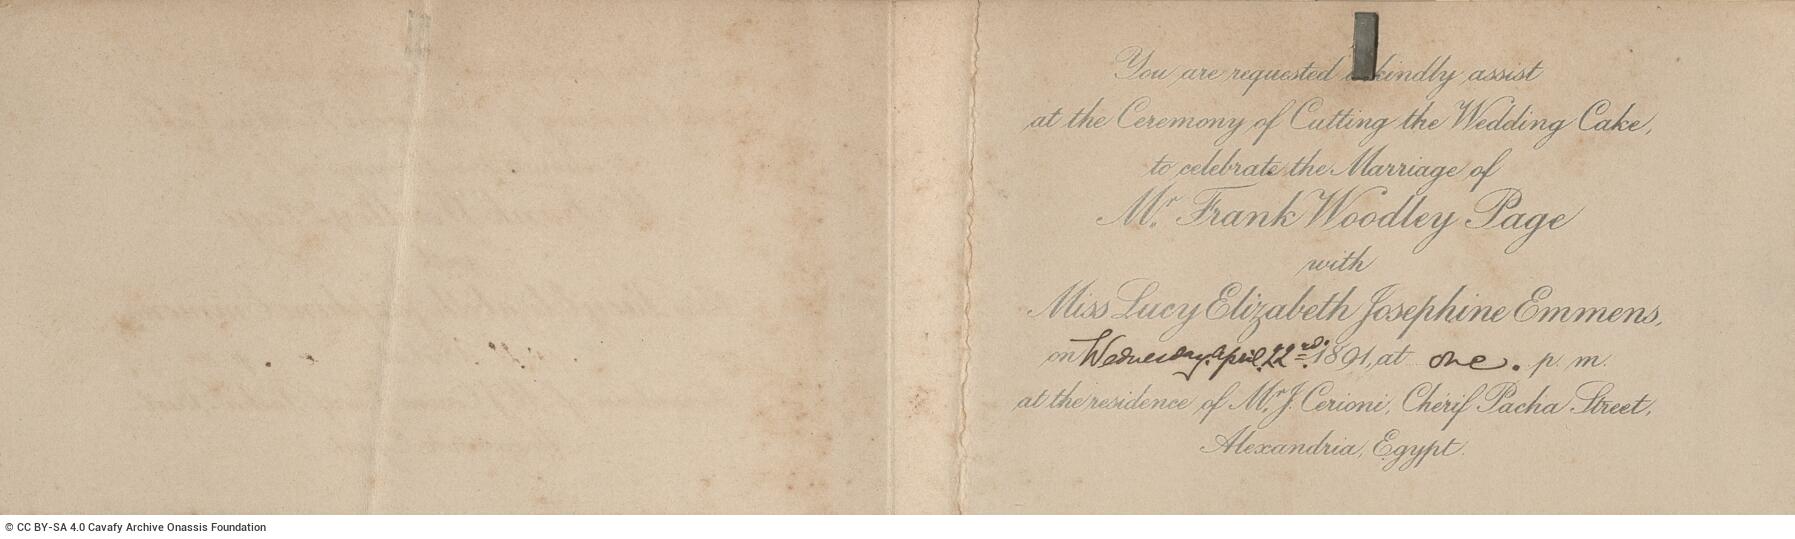 You are requested kindly assist
at the Ceremony of Cutting the Wedding Cake,
to celebrate the Marriage of
Mr. Frank Woodley Page
with
Miss Lucy Elizabeth Josephine Emmens,
on Wednesday, April 22rd. 1891, at one. p. m.
at the residence of Mr. J. Cerioni, Chérif Pacha Street,
Alexandria, Egypt.
© CC BY-SA 4.0 Cavafy Archive Onassis Foundation